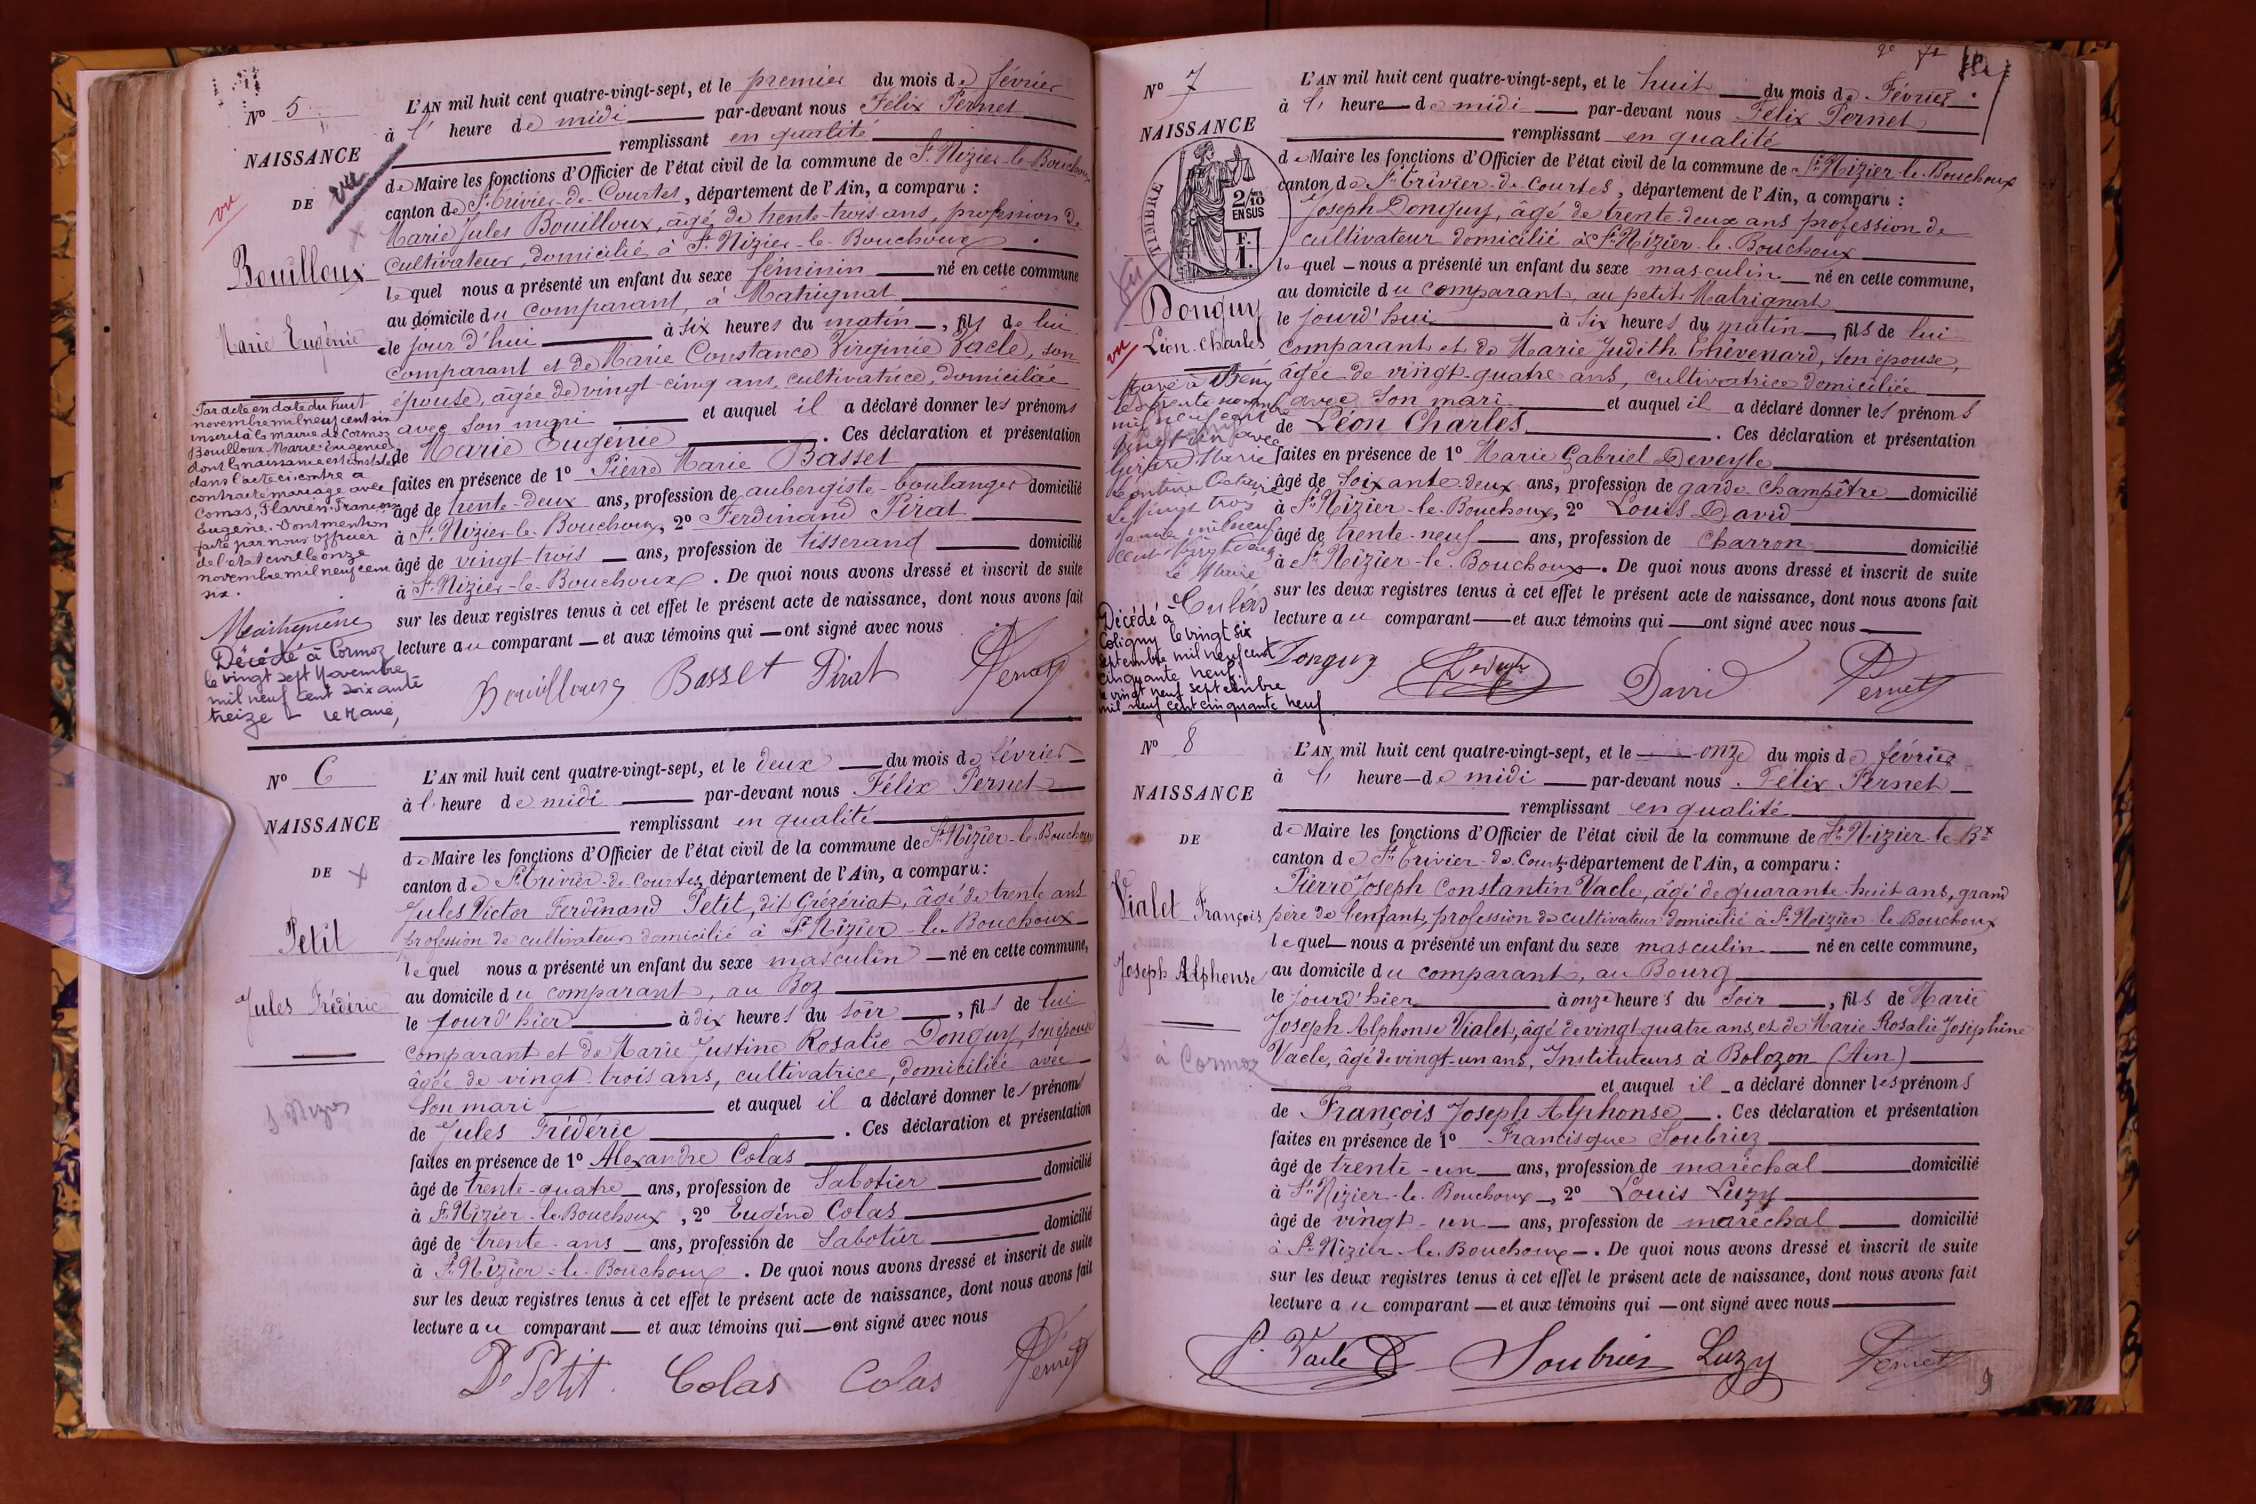 N° 5
NAISSANCE
DE
vu
vu
Bouilloux
Marie Eugénie
Par acte en date du huit
novembre mil neuf cent six
inscrit à la mairie de Cormoz
Bouilloux Marie Eugénie
dont la naissance est constatée
dans l'acte ci-contre a
contracté mariage avec
Comas, Flavien François
Eugène. Dont mention
faite par nous officier
de l'état civil le onze
novembre mil neuf cent
six.
Décédé à Cormoz
le vingt sept Novembre
mil neuf cent soixante
treize - le Maire,
L'AN mil huit cent quatre-vingt-sept, et le premier du mois de février
à l' heure de midi par-devant nous Félix Pernet
remplissant en qualité
de Maire les fonctions d'Officier de l'état civil de la commune de St-Nizier-le-Bouchoux
canton de St-Trivier-de-Courtes, département de l'Ain, a comparu :
Marie Jules Bouilloux, âgé de trente-trois ans, profession de
cultivateur, domicilié à St-Nizier-le-Bouchoux
lequel nous a présenté un enfant du sexe féminin né en cette commune
au domicile du comparant, à Matrignat
le jour d'hui à six heures du matin, fils de lui
comparant et de Marie Constance Virginie Vacle, son
épouse, âgée de vingt-cinq ans, cultivatrice, domiciliée
avec son mari et auquel il a déclaré donner les prénoms
de Marie Eugénie. Ces déclaration et présentation
faites en présence de 1° Pierre Marie Basset
âgé de trente-deux ans, profession de aubergiste-boulanger domicilié
à St-Nizier-le-Bouchoux, 2° Ferdinand Pirat
âgé de vingt-trois ans, profession de tisserand domicilié
à St-Nizier-le-Bouchoux. De quoi nous avons dressé et inscrit de suite
sur les deux registres tenus à cet effet le présent acte de naissance, dont nous avons fait
lecture au comparant et aux témoins qui ont signé avec nous
Bouilloux Basset Pirat Pernet
N° 6
NAISSANCE
DE
Petit
Jules Frédéric
S Nizier
L'AN mil huit cent quatre-vingt-sept, et le deux du mois de février
à l' heure de midi par-devant nous Félix Pernet
remplissant en qualité
de Maire les fonctions d'Officier de l'état civil de la commune de St-Nizier-le-Bouchoux
canton de St-Trivier-de-Courtes, département de l'Ain, a comparu :
Jules Victor Ferdinand Petit, dit Grézériat, âgé de trente ans
profession de cultivateur domicilié à St-Nizier-le-Bouchoux
lequel nous a présenté un enfant du sexe masculin né en cette commune,
au domicile du comparant, au Boz
le jourd'hier à dix heures du soir, fils de lui
comparant et de Marie Justine Rosalie Donguy, son épouse
âgée de vingt-trois ans, cultivatrice, domiciliée avec
son mari et auquel il a déclaré donner les prénoms
de Jules Frédéric. Ces déclaration et présentation
faites en présence de 1° Alexandre Colas
âgé de trente-quatre ans, profession de Sabotier domicilié
à St-Nizier-le-Bouchoux, 2° Eugène Colas
âgé de trente-ans ans, profession de Sabotier domicilié
à St-Nizier-le-Bouchoux. De quoi nous avons dressé et inscrit de suite
sur les deux registres tenus à cet effet le présent acte de naissance, dont nous avons fait
lecture au comparant et aux témoins qui ont signé avec nous
Petit Colas Colas Pernet
N° 7
NAISSANCE
TIMBRE
2/10
EN SUS
F.
1.
vu
Donguy
vu
Léon-Charles
Gérard Marie
le Maire
Décédé à
Coligny le vingt six
septembre mil neuf cent
cinquante neuf
le vingt neuf septembre
mil neuf cent cinquante neuf
L'AN mil huit cent quatre-vingt-sept, et le huit du mois de Février
à l' heure de midi par-devant nous Félix Pernet
remplissant en qualité
de Maire les fonctions d'Officier de l'état civil de la commune de St-Nizier-le-Bouchoux
canton de St-Trivier-de-Courtes, département de l'Ain, a comparu :
Joseph Donguy, âgé de trente-deux ans profession de
cultivateur domicilié à St-Nizier-le-Bouchoux
lequel nous a présenté un enfant du sexe masculin né en cette commune,
au domicile du comparant, au petit Matrignat
le jourd'hui à six heures du matin, fils de lui
comparant et de Marie Judith Thévenard, son épouse,
âgée de vingt-quatre ans, cultivatrice domiciliée
avec son mari et auquel il a déclaré donner les prénoms
de Léon Charles. Ces déclaration et présentation
faites en présence de 1° Marie Gabriel Deveyle
âgé de soixante-deux ans, profession de garde-champêtre domicilié
à St-Nizier-le-Bouchoux, 2° Louis David
âgé de trente-neuf ans, profession de charron domicilié
à St-Nizier-le-Bouchoux. De quoi nous avons dressé et inscrit de suite
sur les deux registres tenus à cet effet le présent acte de naissance, dont nous avons fait
lecture au comparant et aux témoins qui ont signé avec nous
Donguy Deveyle David Pernet
N° 8
NAISSANCE
DE
Vialet François
Joseph Alphonse
à Cormoz
L'AN mil huit cent quatre-vingt-sept, et le onze du mois de février
à l' heure de midi par-devant nous Félix Pernet
remplissant en qualité
de Maire les fonctions d'Officier de l'état civil de la commune de St-Nizier-le-Bx
canton de St-Trivier-de-Courtes, département de l'Ain, a comparu :
Pierre Joseph Constantin Vacle, âgé de quarante-huit ans, grand
père de l'enfant, profession de cultivateur domicilié à St-Nizier-le-Bouchoux
lequel nous a présenté un enfant du sexe masculin né en cette commune,
au domicile du comparant, au Bourg
le jourd'hier à onze heures du soir, fils de Marie
Joseph Alphonse Vialet, âgé de vingt quatre ans, et de Marie Rosalie Joséphine
Vacle, âgé de vingt-un ans, Instituteurs à Bolozon (Ain)
et auquel il a déclaré donner les prénoms
de François Joseph Alphonse. Ces déclaration et présentation
faites en présence de 1° Francisque Soubriez
âgé de trente-un ans, profession de maréchal domicilié
à St-Nizier-le-Bouchoux, 2° Louis Luzy
âgé de vingt-un ans, profession de maréchal domicilié
à St-Nizier-le-Bouchoux. De quoi nous avons dressé et inscrit de suite
sur les deux registres tenus à cet effet le présent acte de naissance, dont nous avons fait
lecture au comparant et aux témoins qui ont signé avec nous
P. Vacle Soubrier Luzy Pernet